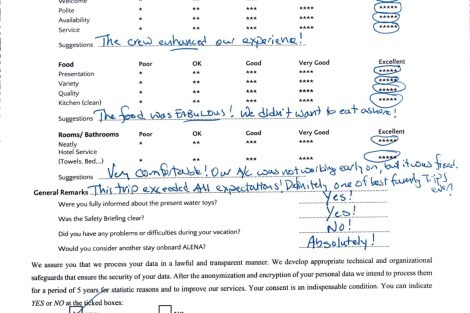 Welcome * ** *** **** *****
Polite * ** *** **** *****
Availability * ** *** **** *****
Service * ** *** **** *****
Suggestions The crew enhanced our experience!
Food Poor OK Good Very Good Excellent
Presentation * ** *** **** *****
Variety * ** *** **** *****
Quality * ** *** **** *****
Kitchen (clean) * ** *** **** *****
Suggestions The food was FABULOUS! We didn't want to eat ashore!
Rooms/ Bathrooms Poor OK Good Very Good Excellent
Neatly * ** *** **** *****
Hotel Service
(Towels, Bed...) * ** *** **** *****
Suggestions Very comfortable! Our A/C was not working early on, but it was fixed.
General Remarks This trip exceeded All expectations! Definitely one of best family trips ever!
Were you fully informed about the present water toys? Yes!
Was the Safety Briefing clear? Yes!
Did you have any problems or difficulties during your vacation? No!
Would you consider another stay onboard ALENA? Absolutely!
We assure you that we process your data in a lawful and transparent manner. We develop appropriate technical and organizational
safeguards that ensure the security of your data. After the anonymization and encryption of your personal data we intend to process them
for a period of 5 years for statistic reasons and to improve our services. Your consent is an indispensable condition. You can indicate
YES or NO at the ticked boxes: